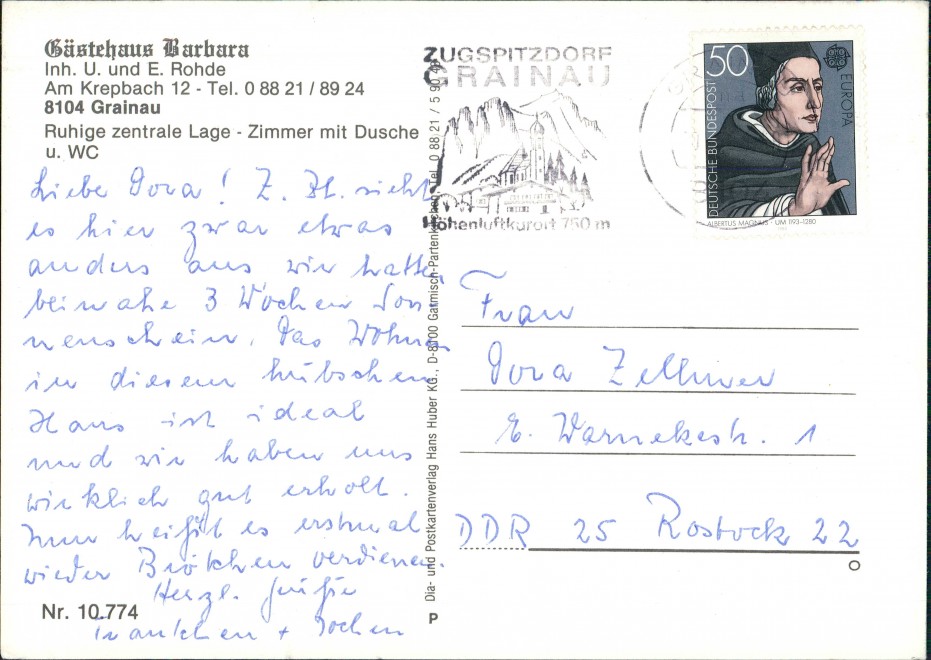 Gästehaus Barbara
Inh. U. und E. Rohde
Am Krepbach 12 - Tel. 0 88 21 / 89 24
8104 Grainau
Ruhige zentrale Lage - Zimmer mit Dusche
u. WC
Liebe Dora! Z. Zt. sieht
es hier zwar etwas
anders aus wir hatten
beinahe 3 Wochen Son
nenschein. Das Wohnen
in diesem hübschen
Haus ist ideal
und wir haben uns
wirklich gut erholt.
Nun heißt es erstmal
wieder Brötchen verdienen.
Herzl. Grüße
Fränkchen + Jochen
Nr. 10.774
Dia- und Postkartenverlag Hans Huber KG., D-8100 Garmisch-Partenkirchen, Tel. 0 88 21 / 5 90
P
ZUGSPITZDORF
GRAINAU
Höhenluftkurort 750 m
50
DEUTSCHE BUNDESPOST
EUROPA
ALBERTUS MAGNUS · UM 1193-1280
Frau
Dora Zellmer
E. Warnekestr. 1
DDR 25 Rostock 22